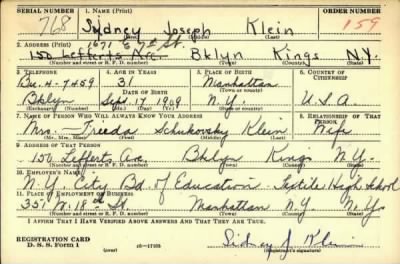 SERIAL NUMBER 1. NAME (Print) ORDER NUMBER
768 Sydney Joseph Klein 159
(First) (Middle) (Last)
2. ADDRESS (Print) 1671 E 7th St.
150 Lefferts Ave. Bklyn Kings N.Y.
(Number and street or R. F. D. number) (Town) (County) (State)
3. TELEPHONE 4. AGE IN YEARS 5. PLACE OF BIRTH 6. COUNTRY OF CITIZENSHIP
Bu. 4-7459 31 Manhattan
DATE OF BIRTH (Town or county)
Bklyn Sept. 17, 1909 N.Y. U.S.A.
(Exchange) (Number) (Mo.) (Day) (Yr.) (State or country)
7. NAME OF PERSON WHO WILL ALWAYS KNOW YOUR ADDRESS 8. RELATIONSHIP OF THAT PERSON
Mrs. Freeda Schukovsky Klein Wife
(Mr., Mrs., Miss) (First) (Middle) (Last)
9. ADDRESS OF THAT PERSON
150 Lefferts Ave. Bklyn Kings N.Y.
(Number and street or R. F. D. number) (Town) (County) (State)
10. EMPLOYER'S NAME
N.Y. City Bd. of Education Textile High School
11. PLACE OF EMPLOYMENT OR BUSINESS
351 W. 18th St. Manhattan N.Y. N.Y.
(Number and street or R. F. D. number) (Town) (County) (State)
I AFFIRM THAT I HAVE VERIFIED ABOVE ANSWERS AND THAT THEY ARE TRUE.
REGISTRATION CARD
D. S. S. Form 1 (over) 16-17105 Sidney J. Klein